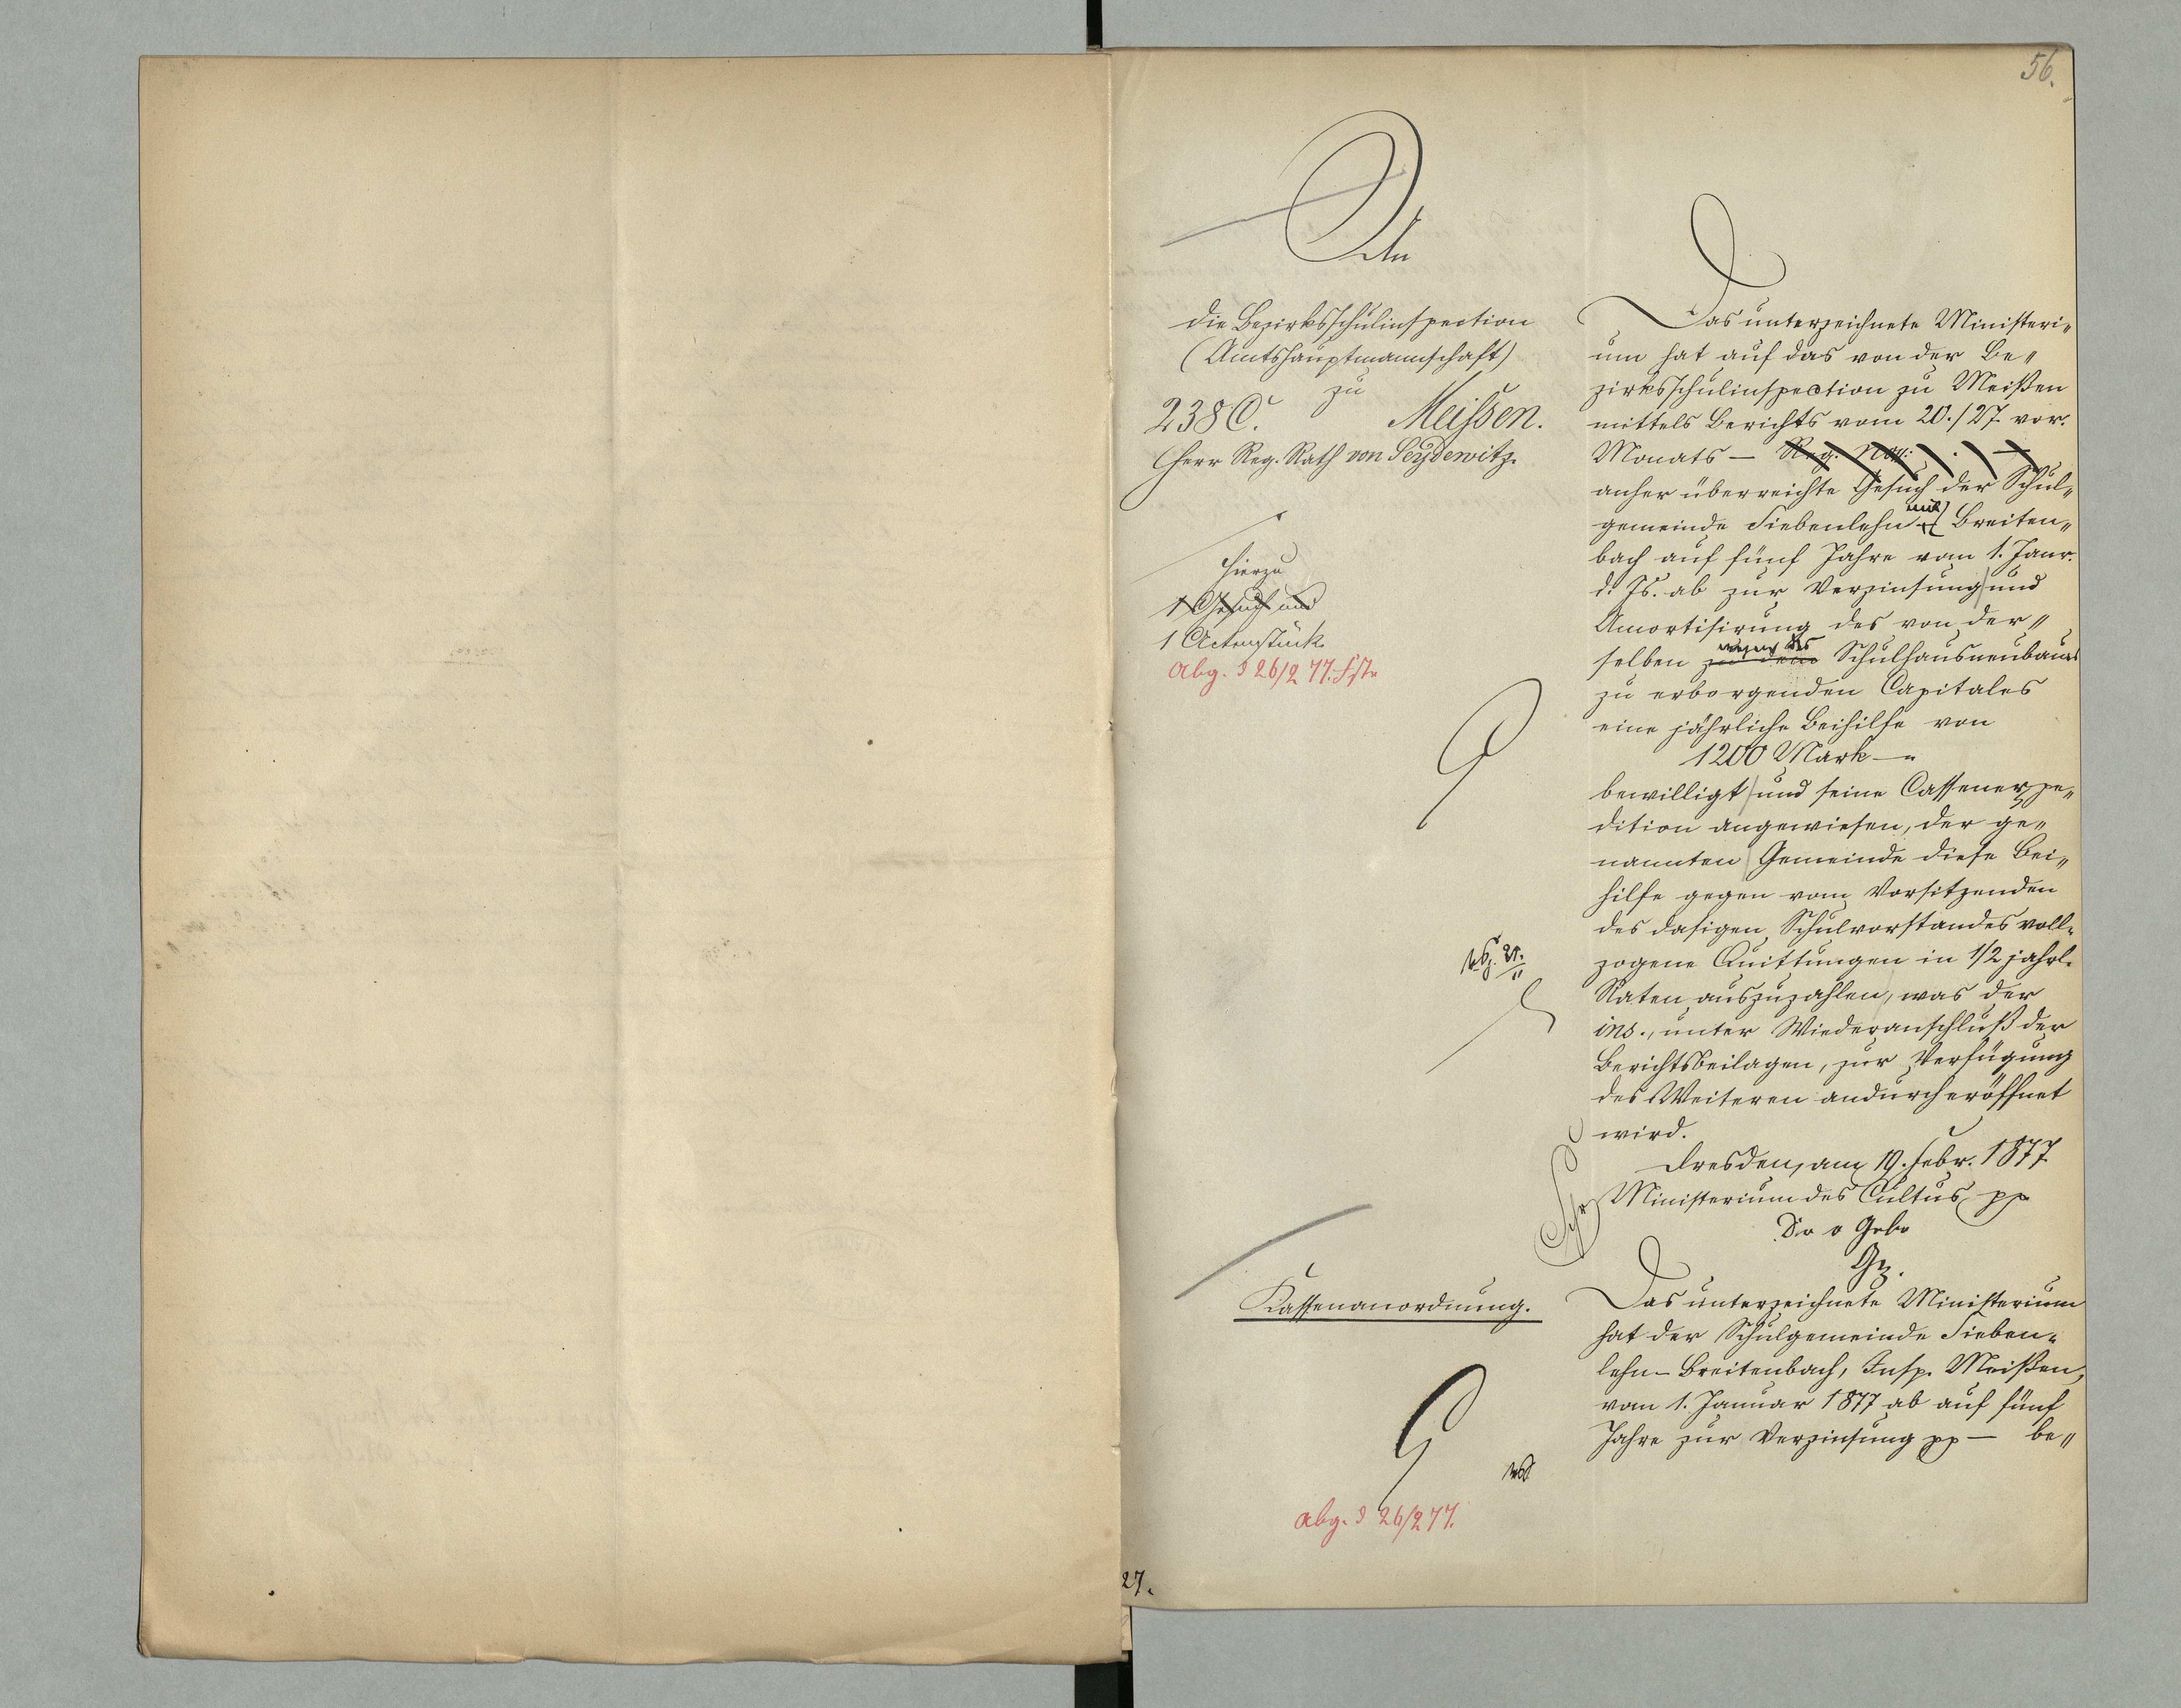 56.
An
die Bezirksschulinspection
(Amtshauptmannschaft)
zu
238 C. Meissen.
Herr Reg. Rath von Seydewitz.
Hierzu
1 Gesuch und
1 Actenstück
Abg. d 26/2 77.
Das unterzeichnete Ministeri„
um hat auf das von der Be„
zirksschulinspection zu Meißen
mittels Berichts vom 20./27. vor.
Monats — Reg. No:
anher überreichte Gesuch der Schul„
gemeinde Siebenlehn mit Breiten„
bach auf fünf Jahre vom 1. Janr.
d. Js. ab zur Verzinsung und
Amortisirung des von der„
selben zu dem wegen des Schulhausneubaues
zu erborgenden Capitales
eine jährliche Beihilfe von
1200 Mark —„
bewilligt und seine Cassenexpe„
dition angewiesen, der ge„
nannten Gemeinde diese Bei„
hilfe gegen vom Vorsitzenden
des dasigen Schulvorstandes voll„
zogene Quittungen in 1/2 jährl.
Raten auszuzahlen, was der
ins., unter Wiederanschluß der
Berichtsbeilagen, zur Verfügung
des Weiteren andurch eröffnet
wird.
Dresden, am 19. Febr. 1877
Ministerium des Cultus pp
Dr v Gerber
Gz.
Kassenanordnung.
Das unterzeichnete Ministerium
hat der Schulgemeinde Sieben„
lehn-Breitenbach, Insp. Meißen,
vom 1. Januar 1877 ab auf fünf
Jahre zur Verzinsung pp — be„
abg. d 26/2 77.
27.